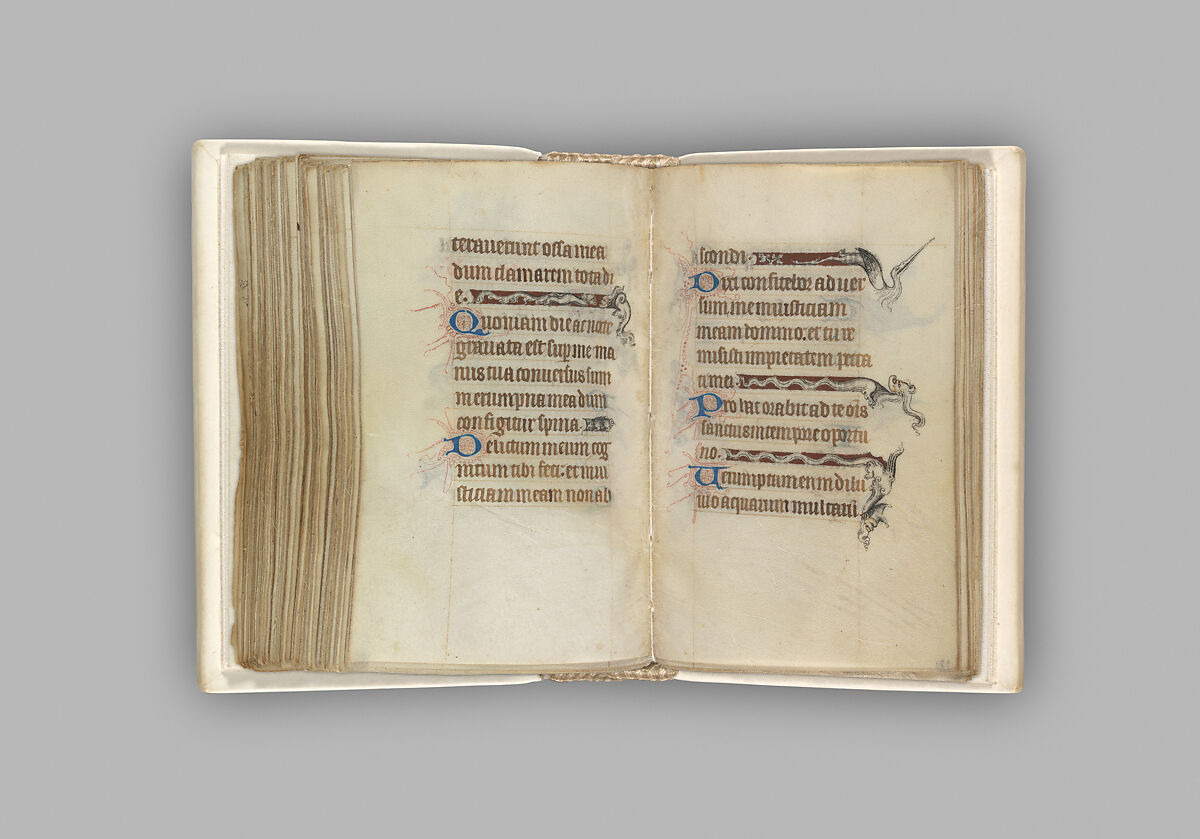 teraverunt ossa mea
dum clamarem tota di
e.
Quoniam die ac nocte
gravata est sup me ma
nus tua conversus sum
in erumpna mea dum
configitur spina.
Delictum meum cog
nitum tibi feci: et iniu
sticiam meam non ab
scondi.
Dixi confitebor adver
sum me iniusticiam
meam domino: et tu re
misisti impietatem pecca
ti mei.
Pro hac orabit ad te ois
sanctus in tempore oportu
no.
Verumptamen in dilu
vio aquarum multaru